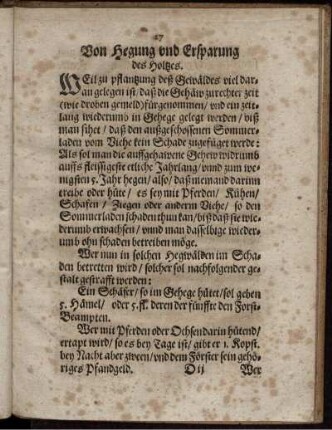 27
Von Hegung vnd Ersparung
des Holtzes.
WEil zu pflantzung deß Gewäldes viel dar-
an gelegen ist/ daß die Gehäw zurechter zeit
(wie droben gemeld) fürgenommen/ vnd ein zeit-
lang wiederumb in Gehege gelegt werden/ biß
man sihet/ daß den außgeschossenen Sommer-
laden vom Viehe kein Schade zugefüget werde:
Als sol man die auffgehawene Gehew widrumb
auffs fleissigeste etliche Jahrlang/ vnnd zum we-
nigsten 5. Jahr hegen/ also/ daß niemand darinn
treibe oder hüte/ es sey mit Pferden/ Kühen/
Schafen/ Ziegen oder anderm Viehe/ so den
Sommerladen schaden thun kan/ biß daß sie wie-
derumb erwachsen/ vnnd man dasselbige wieder-
umb ohn schaden betreiben möge.
Wer nun in solchen Hegwälden im Scha-
den betretten wird/ solcher sol nachfolgender ge-
stalt gestrafft werden:
Ein Schäfer/ so im Gehege hütet/ sol geben
5. Hämel/ oder 5. fl. deren der fünffte den Forst-
Beampten.
Wer mit Pferden oder Ochsen darin hütend/
ertapt wird/ so es bey Tage ist/ gibt er 1. Kopst.
bey Nacht aber zween/ vnd dem Förster sein gehö-
riges Pfandgeld. D ij Wer